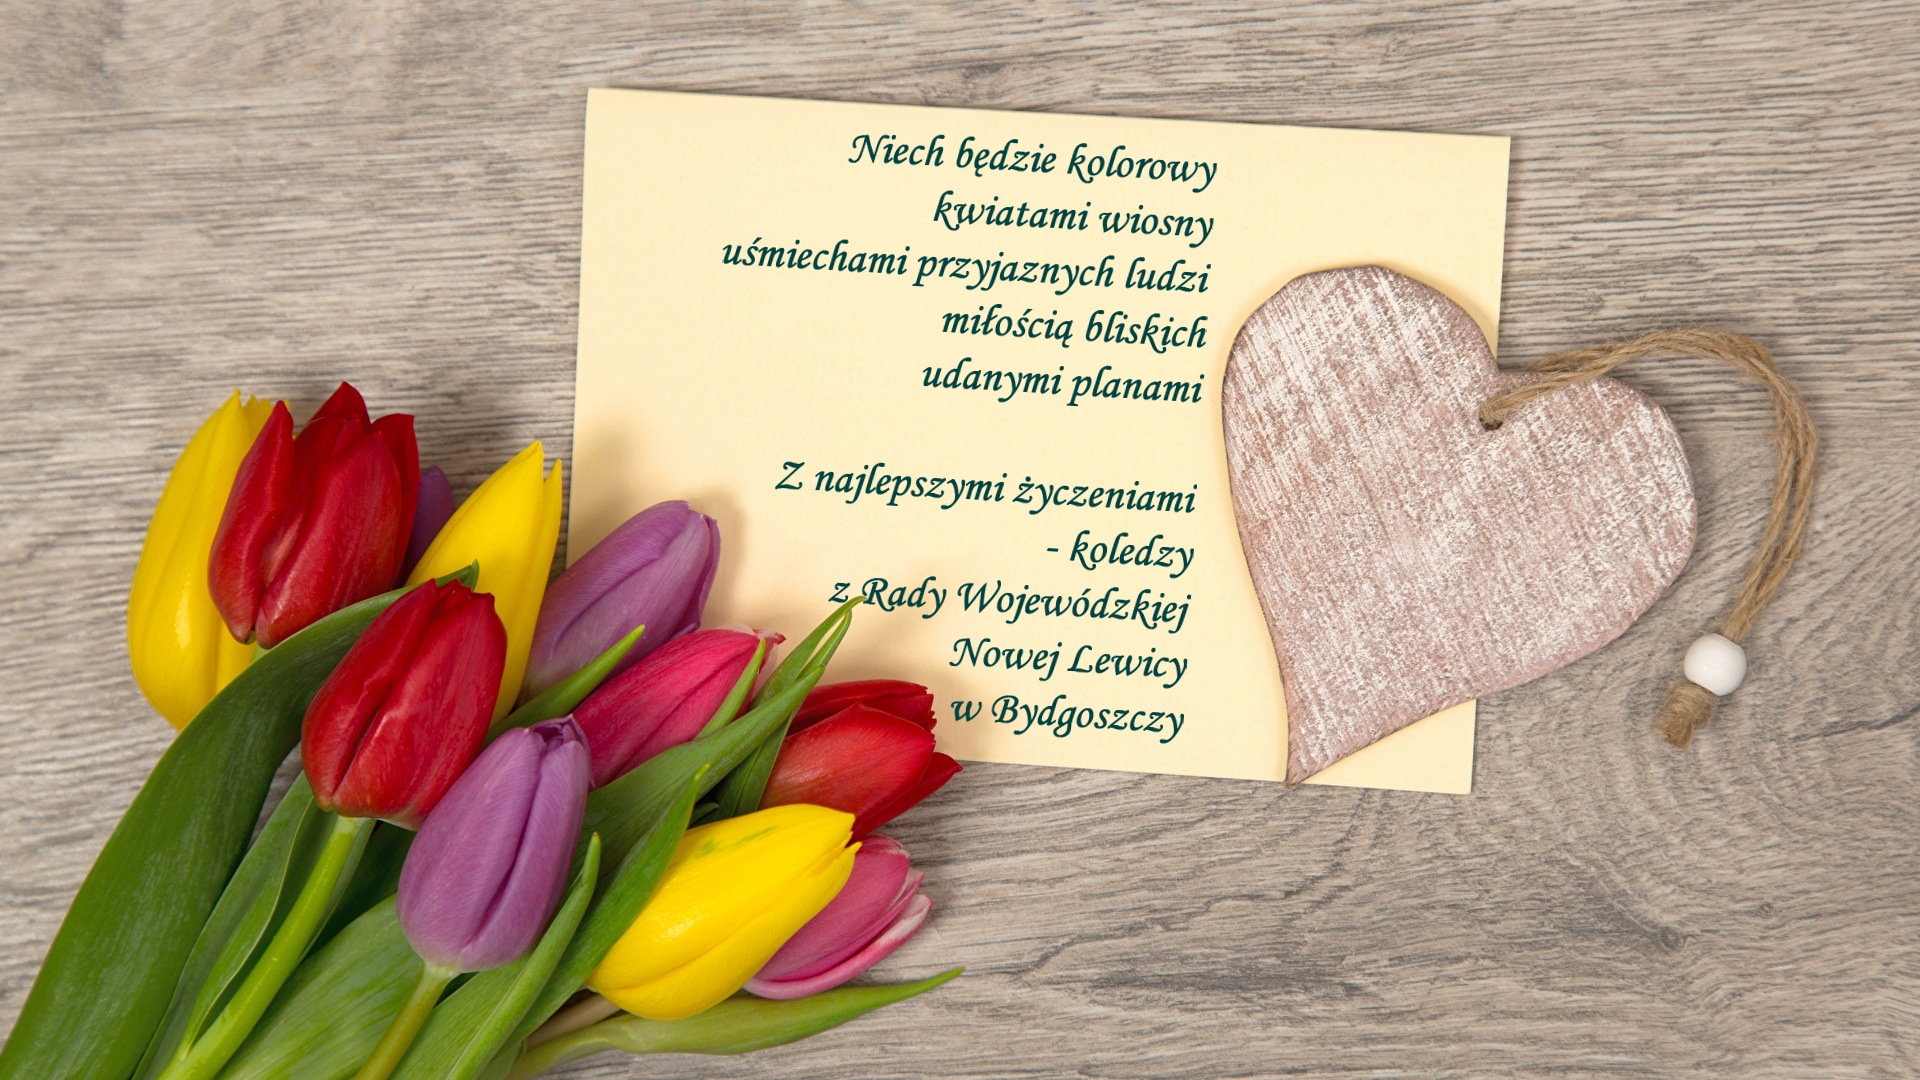 Niech będzie kolorowy
kwiatami wiosny
uśmiechami przyjaznych ludzi
miłością bliskich
udanymi planami
Z najlepszymi życzeniami
- koledzy
z Rady Wojewódzkiej
Nowej Lewicy
w Bydgoszczy